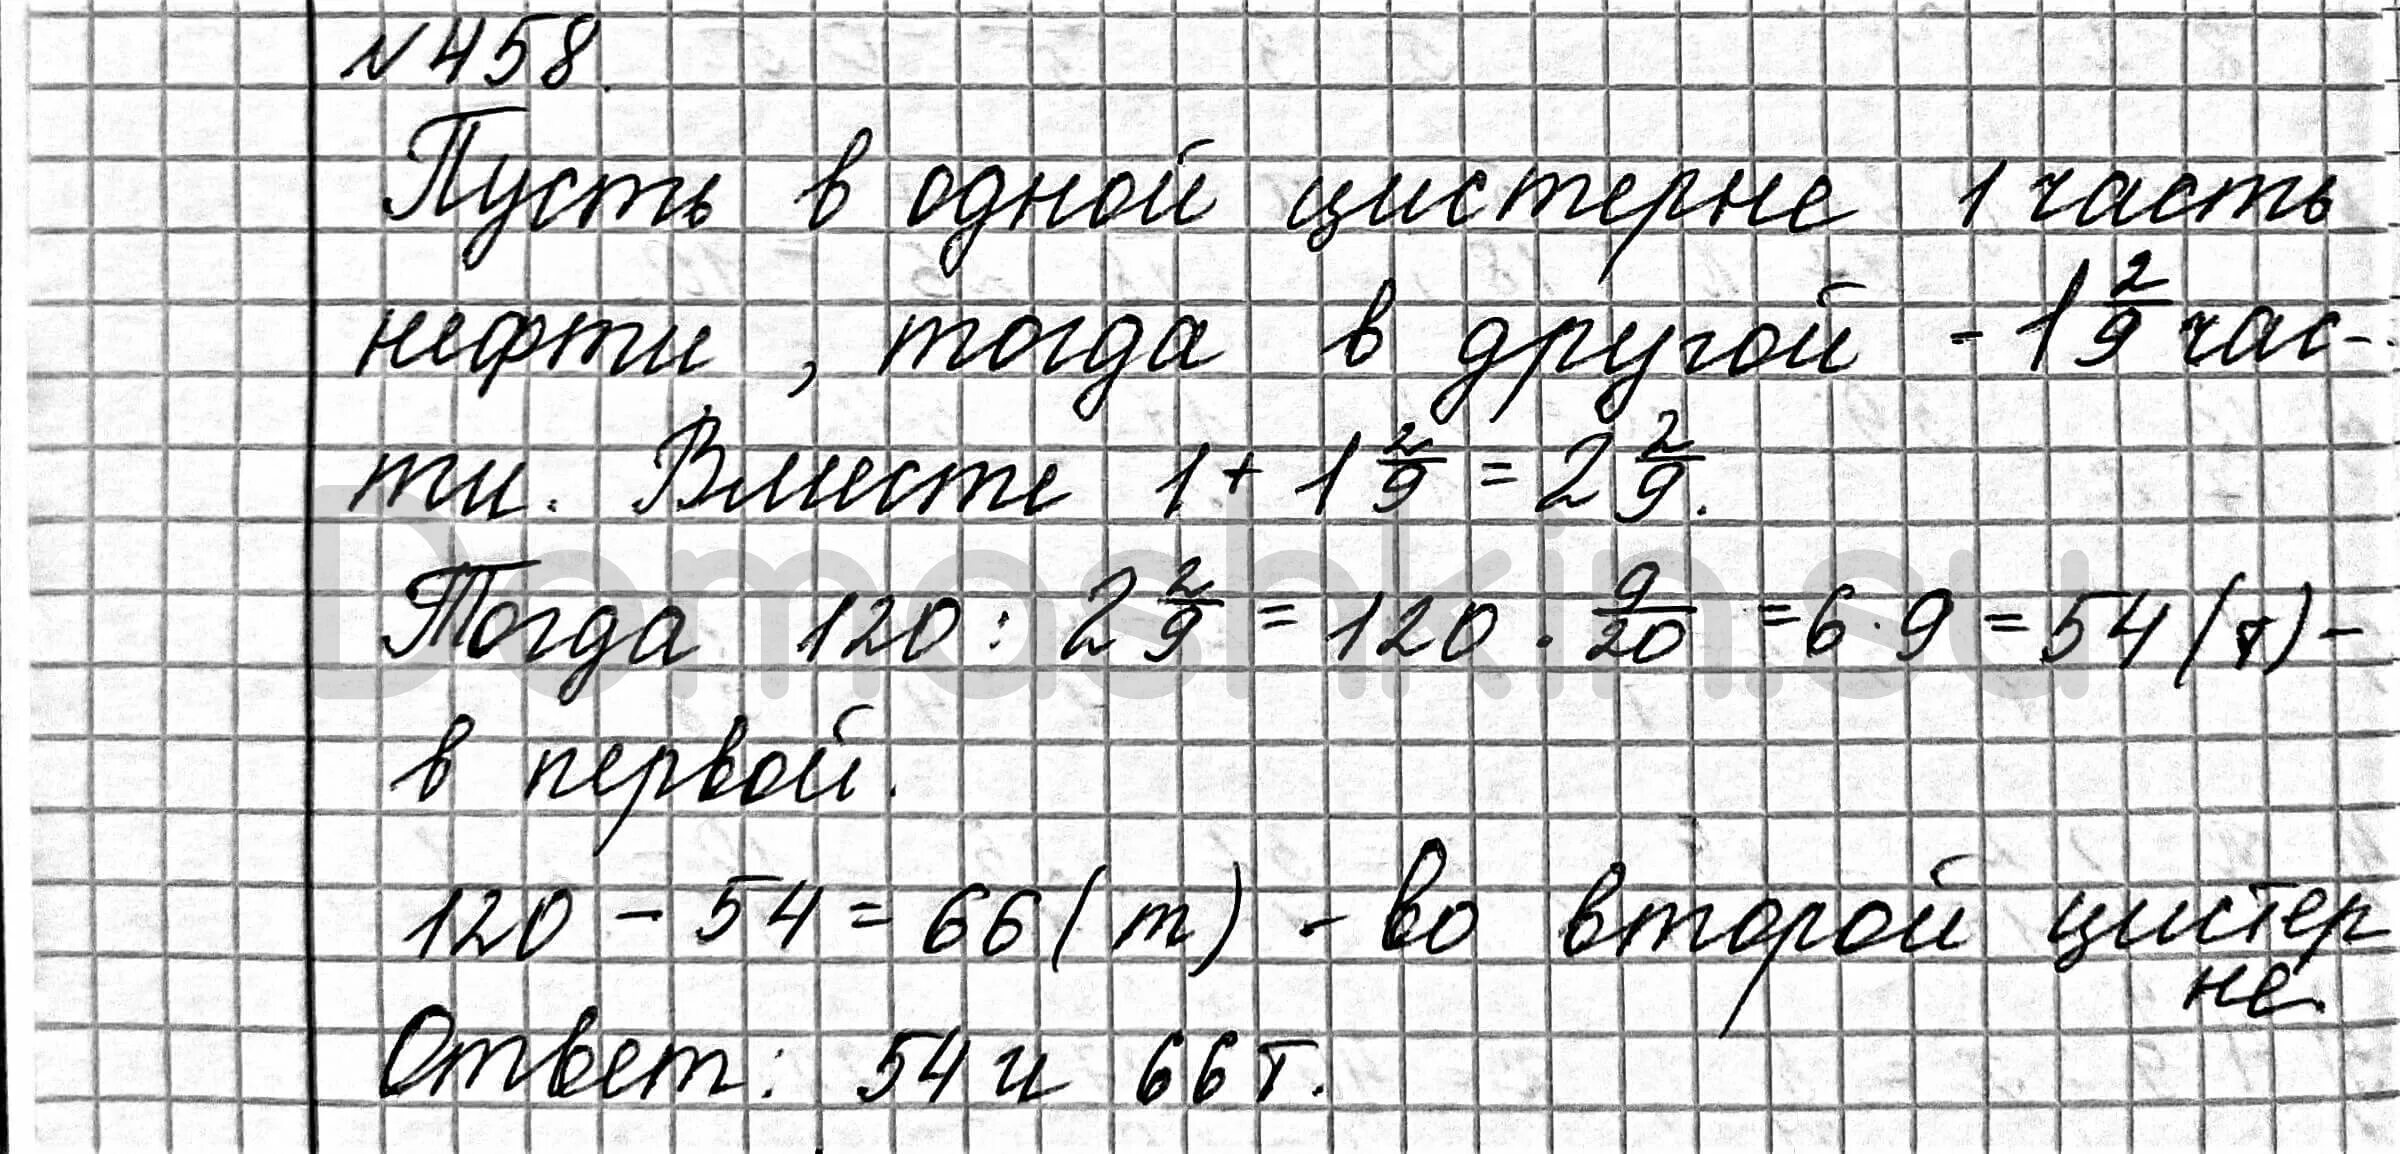 №458.
Пусть в одной цистерне 1 часть
нефти, тогда в другой - 1 2/9 час-
ти. Вместе 1 + 1 2/9 = 2 2/9.
Тогда 120 : 2 2/9 = 120 · 9/20 = 6 · 9 = 54 (т) -
в первой.
120 - 54 = 66 (т) - во второй цистер
не.
Ответ: 54 и 66 т.
Domashkin.su